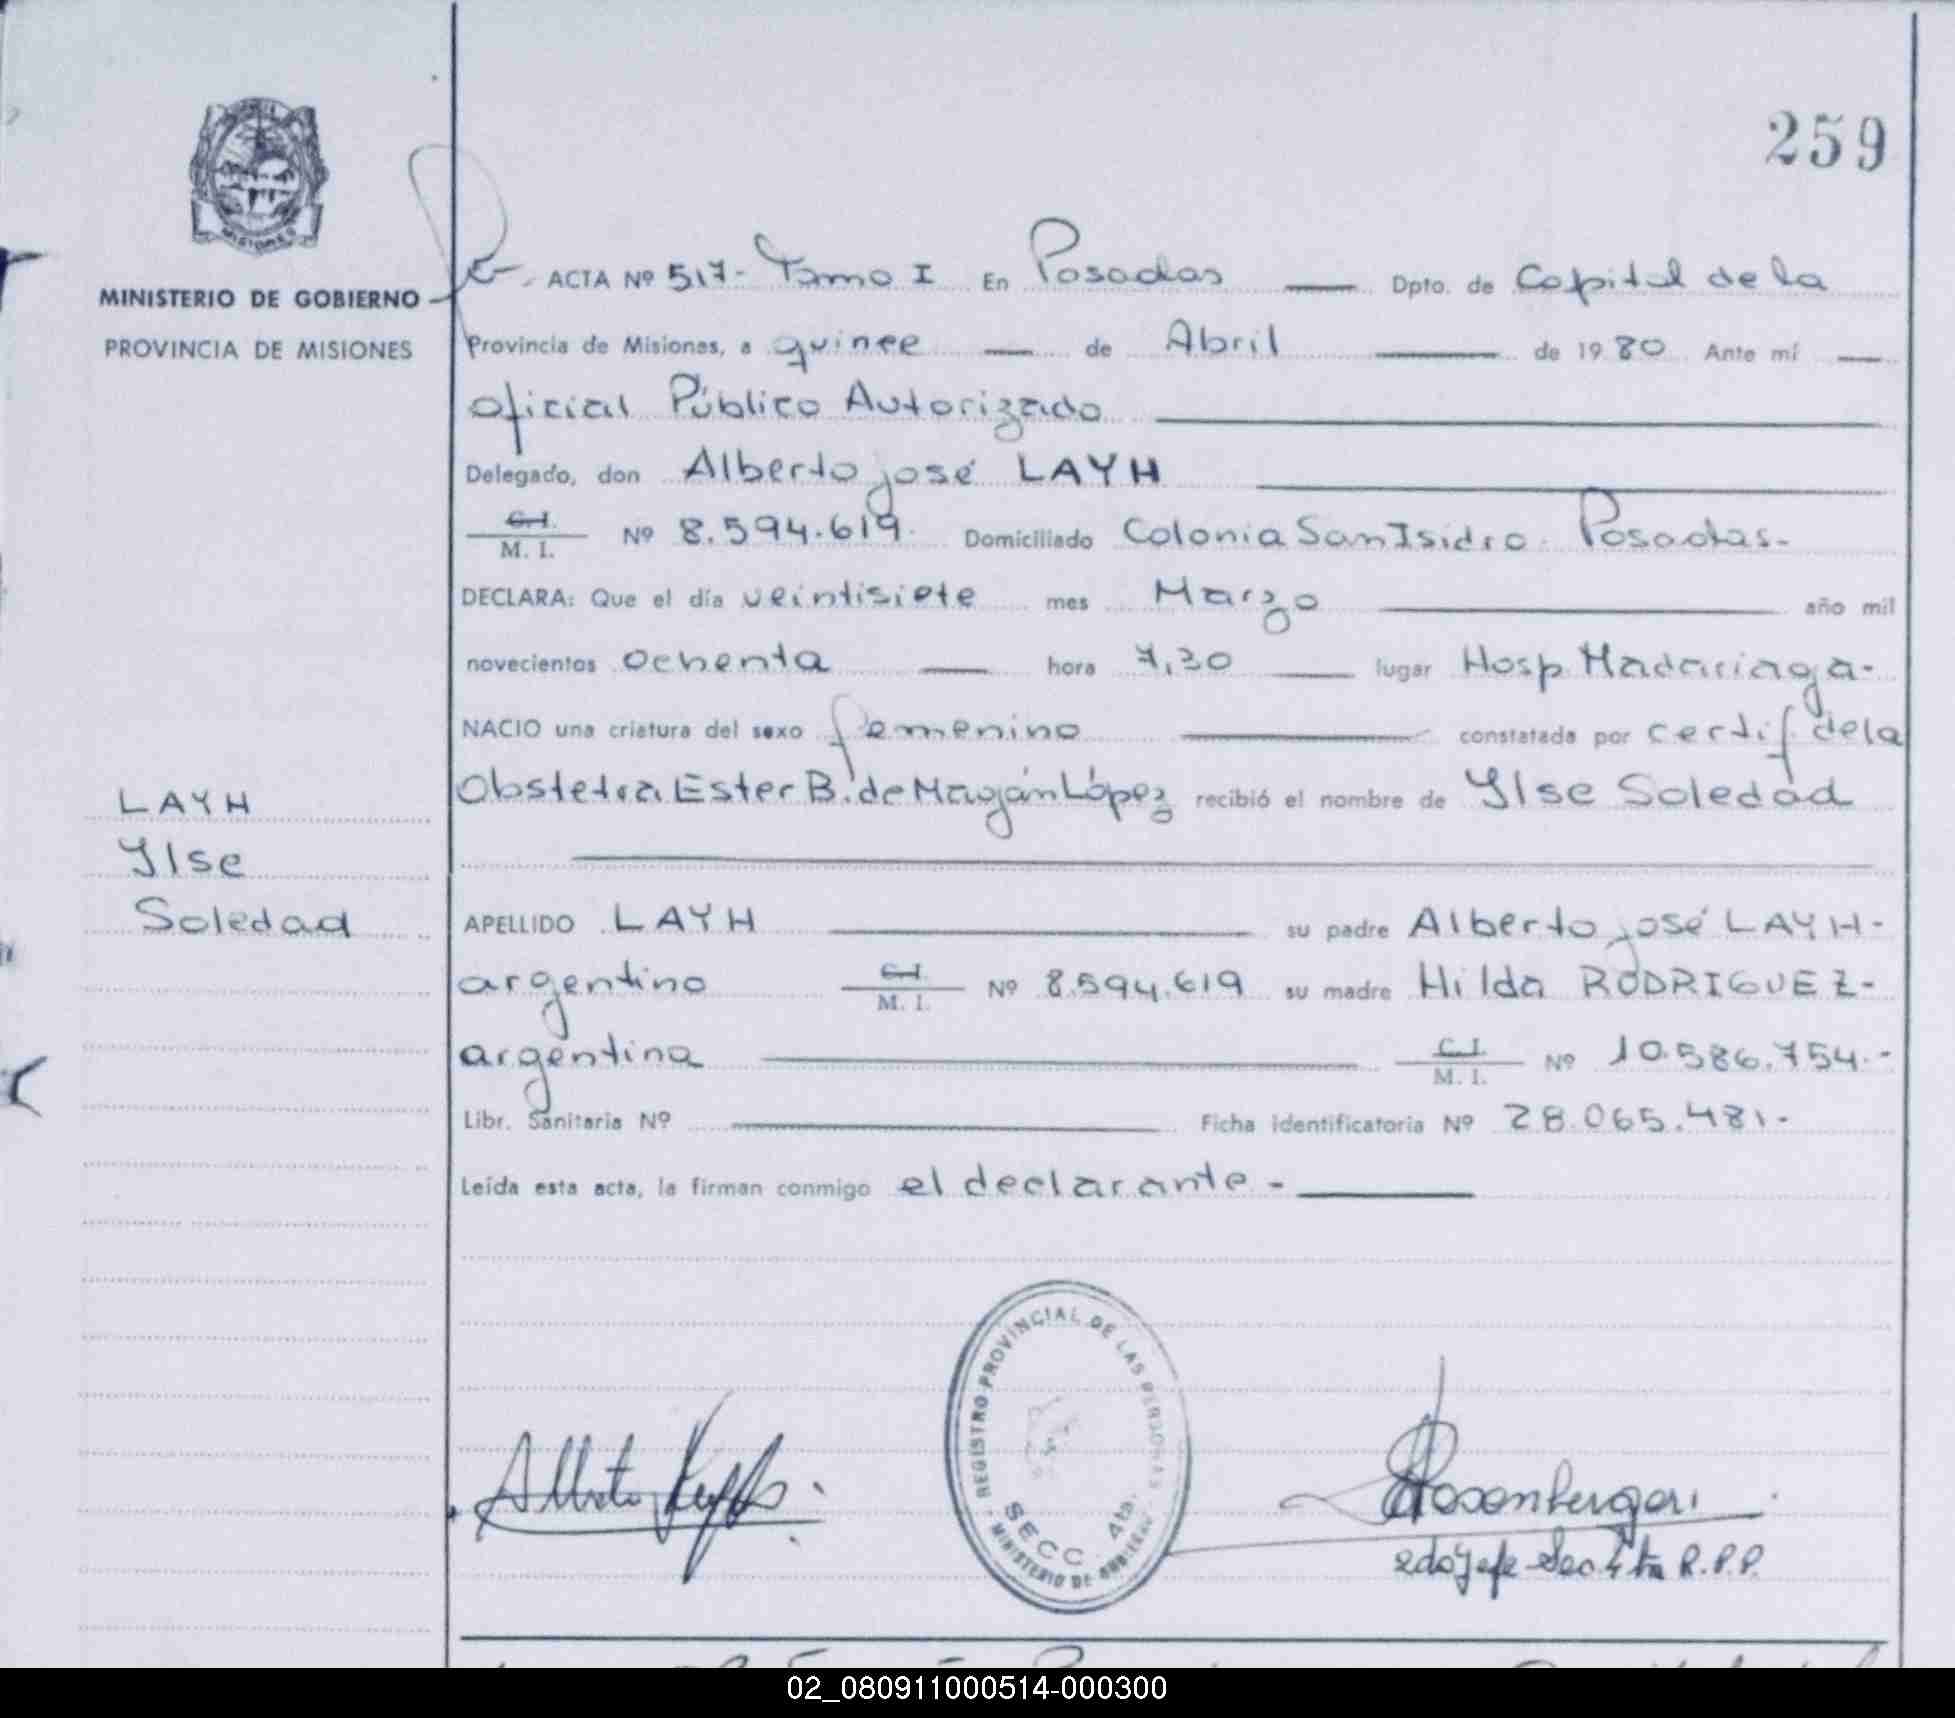 259
MISIONES
MINISTERIO DE GOBIERNO
PROVINCIA DE MISIONES
ACTA Nº 517- Tomo I En Posadas Dpto. de Capital de la
Provincia de Misiones, a quince de Abril de 1980 Ante mí
oficial Público Autorizado
Delegado, don Alberto josé LAYH
C.I. M. I. Nº 8.594.619. Domiciliado Colonia San Isidro. Posadas.
DECLARA: Que el día veintisiete mes Marzo año mil
novecientos ochenta hora 7,30 lugar Hosp Madariaga-
NACIO una criatura del sexo femenino constatada por certif dela
Obstetra Ester B. de Magán López recibió el nombre de Ylse Soledad
LAYH
Ylse
Soledad
APELLIDO LAYH su padre Alberto josé LAYH-
argentino C.I. M. I. Nº 8.594.619 su madre Hilda RODRIGUEZ-
argentina C.I. M. I. Nº 10.586.754.-
Libr. Sanitaria Nº Ficha identificatoria Nº 28.065.481-
Leída esta acta, la firman conmigo el declarante-
REGISTRO PROVINCIAL DE LAS PERSONAS
SECC. 4ta.
MINISTERIO DE GOBIERNO
Alberto
Rosenberger
2do Jefe Sec. 4ta R.P.P.
02_080911000514-000300